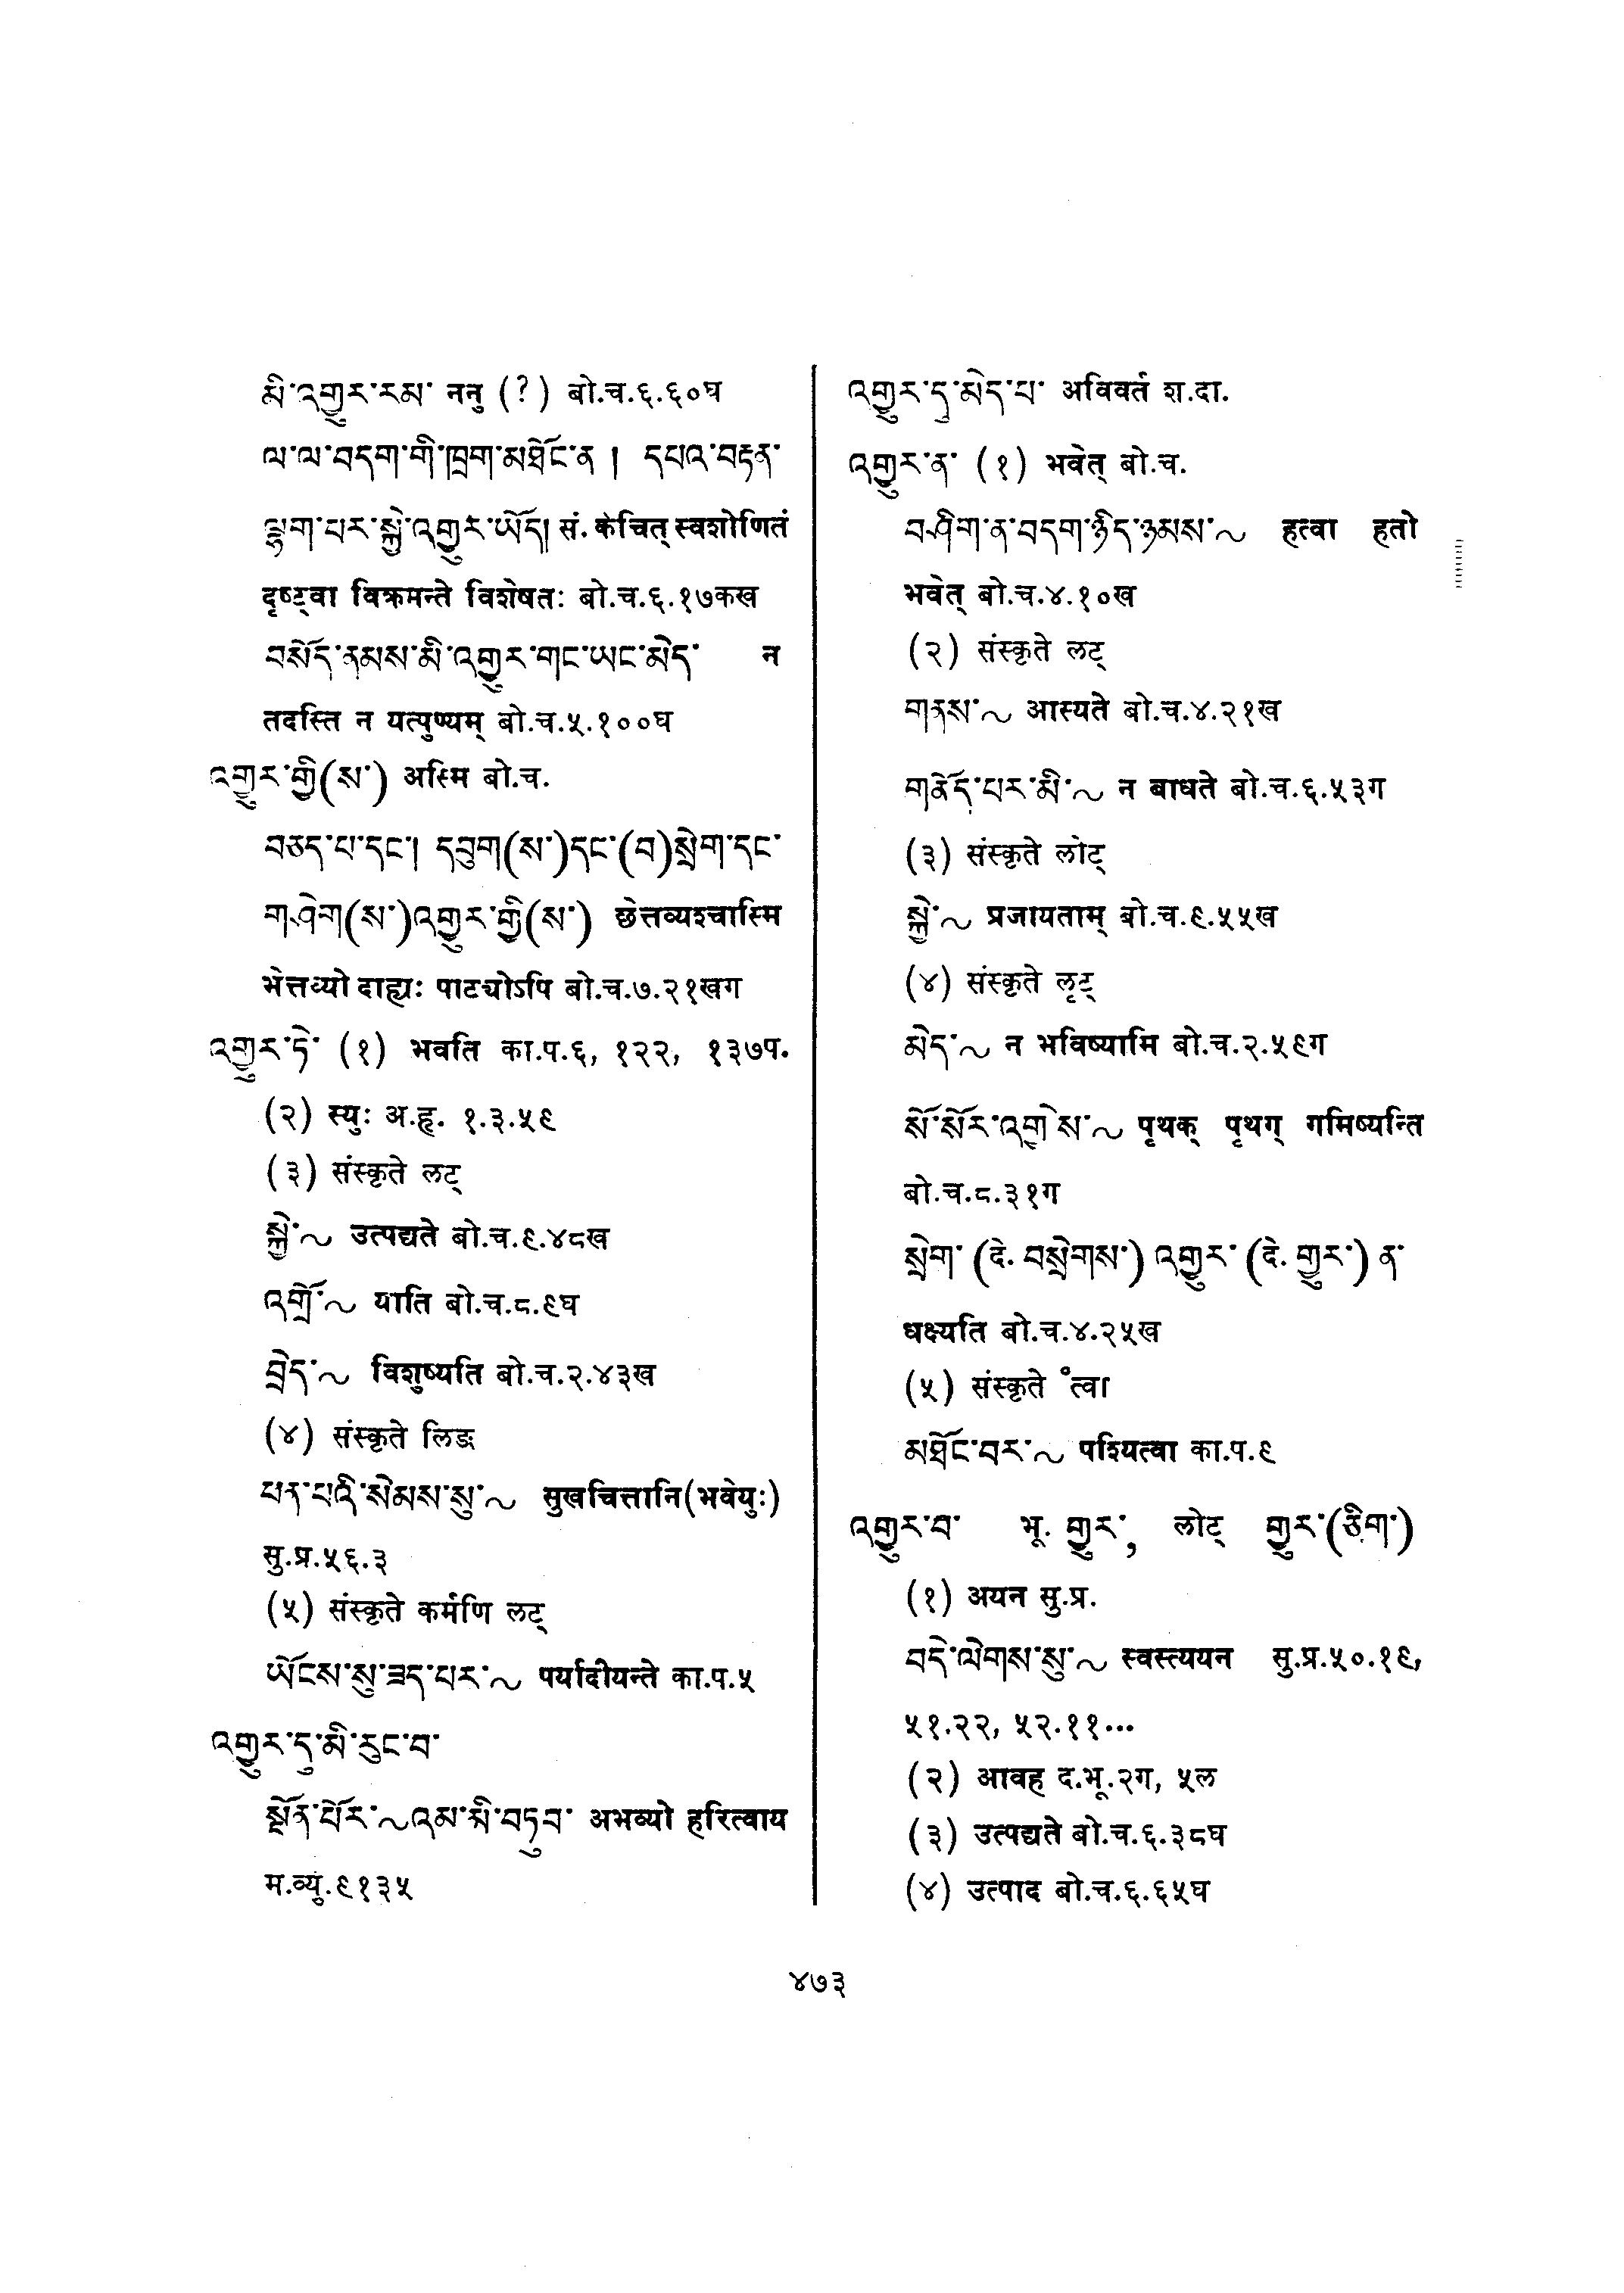 མི་འགྱུར་རམ་ ननु (?) बो.च.६.६०घ
ལ་ལ་བདག་གི་ཁྲག་མཐོང་ན། དཔའ་བརྟན་
ལྷག་པར་སྐྱེ་འགྱུར་ཡོད། सं. केचित् स्वशोणितं
दृष्ट्वा विक्रमन्ते विशेषतः बो.च.६.१७कख
བསོད་ནམས་མི་འགྱུར་གང་ཡང་མེད་ न
तदस्ति न यत्पुण्यम् बो.च.५.१००घ
འགྱུར་གྱི(ས་) अस्मि बो.च.
བཅད་པ་དང་། དབུག(ས་)དང་(བ)སྲེག་དང་
གཤེག(ས་)འགྱུར་གྱི(ས་) छेत्तव्यश्चास्मि
भेत्तव्यो दाह्यः पाट्योऽपि बो.च.७.२१खग
འགྱུར་ཏེ་ (१) भवति का.प.६, १२२, १३७प.
(२) स्युः अ.हृ. १.३.५९
(३) संस्कृते लट्
སྐྱེ་~ उत्पद्यते बो.च.९.४८ख
འགྲོ་~ याति बो.च.८.९घ
བྲེད་~ विशुष्यति बो.च.२.४३ख
(४) संस्कृते लिङ
ཕན་པའི་སེམས་སུ་~ सुखचित्तानि(भवेयुः)
सु.प्र.५६.३
(५) संस्कृते कर्मणि लट्
ཡོངས་སུ་ཟད་པར་~ पर्यादीयन्ते का.प.५
འགྱུར་དུ་མི་རུང་བ་
སྔོན་པོར་~འམ་མི་བཏུབ་ अभव्यो हरित्वाय
म.व्यु.९१३५
འགྱུར་དུ་མེད་པ་ अविवर्त श.दा.
འགྱུར་ན་ (१) भवेत् बो.च.
བཤིག་ན་བདག་ཉིད་ཉམས་~ हत्वा हतो
भवेत् बो.च.४.१०ख
(२) संस्कृते लट्
གནས་~ आस्यते बो.च.४.२१ख
གནོད་པར་མི་~ न बाधते बो.च.६.५३ग
(३) संस्कृते लोट्
སྐྱེ་~ प्रजायताम् बो.च.९.५५ख
(४) संस्कृते लृट्
མེད་~ न भविष्यामि बो.च.२.५९ग
སོ་སོར་འགྱེས་~ पृथक् पृथग् गमिष्यन्ति
बो.च.८.३१ग
སྲེག་ (दे. བསྲེགས་) འགྱུར་ (दे. གྱུར་) ན་
धक्ष्यति बो.च.४.२५ख
(५) संस्कृते ॰त्वा
མཐོང་བར་~ पश्यित्वा का.प.९
འགྱུར་བ་ भू. གྱུར་, लोट् གྱུར་(ཅིག་)
(१) अयन सु.प्र.
བདེ་ལེགས་སུ་~ स्वस्त्ययन सु.प्र.५०.१९,
५१.२२, ५२.११...
(२) आवह द.भू.२ग, ५ल
(३) उत्पद्यते बो.च.६.३८घ
(४) उत्पाद बो.च.६.६५घ
४७३